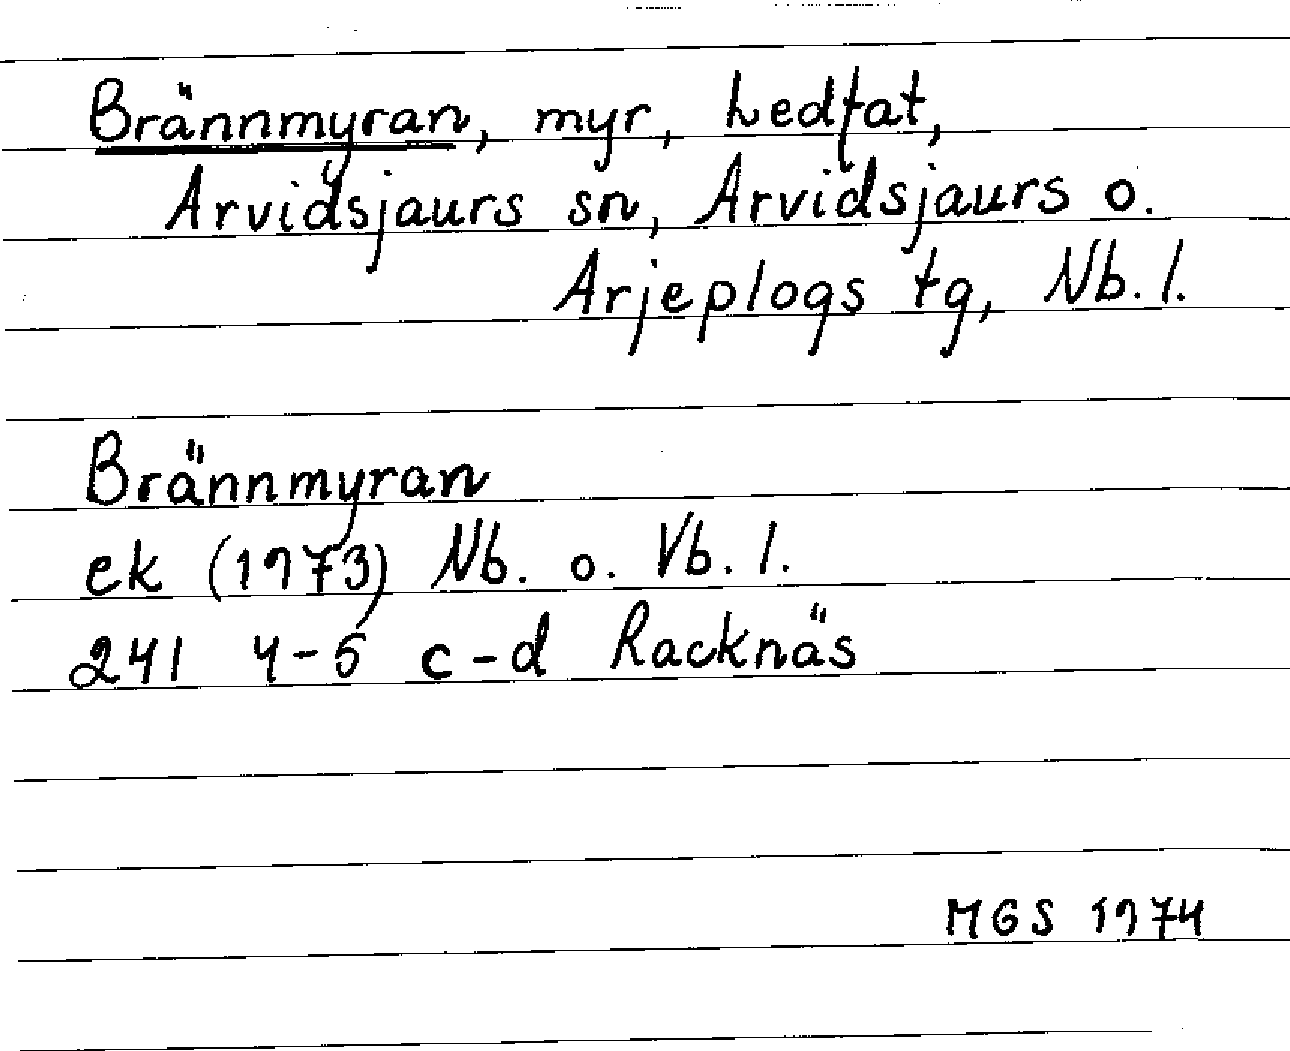 Brännmyran, myr, Ledfat,
Arvidsjaurs sn, Arvidsjaurs o.
Arjeplogs tg, Nb. l.
Brännmyran
ek (1973) Nb. o. Vb. l.
241 4-5 c-d Racknäs
MGS 1974